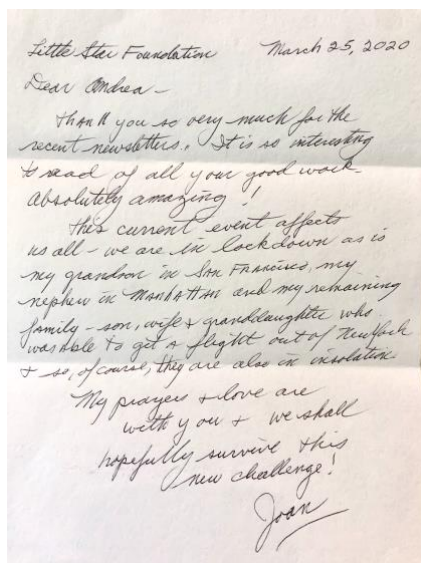 Little Star Foundation March 25, 2020
Dear Andrea -
Thank you so very much for the
recent newsletters. It is so interesting
to read of all your good work.
Absolutely amazing!
This current event affects
us all - we are in lockdown as is
my grandson in San Francisco, my
nephew in Manhattan and my remaining
family - son, wife & granddaughter who
was able to get a flight out of New York
& so, of course, they are also in insolation.
My prayers & love are
with you & we shall
hopefully survive this
new challenge!
Joan